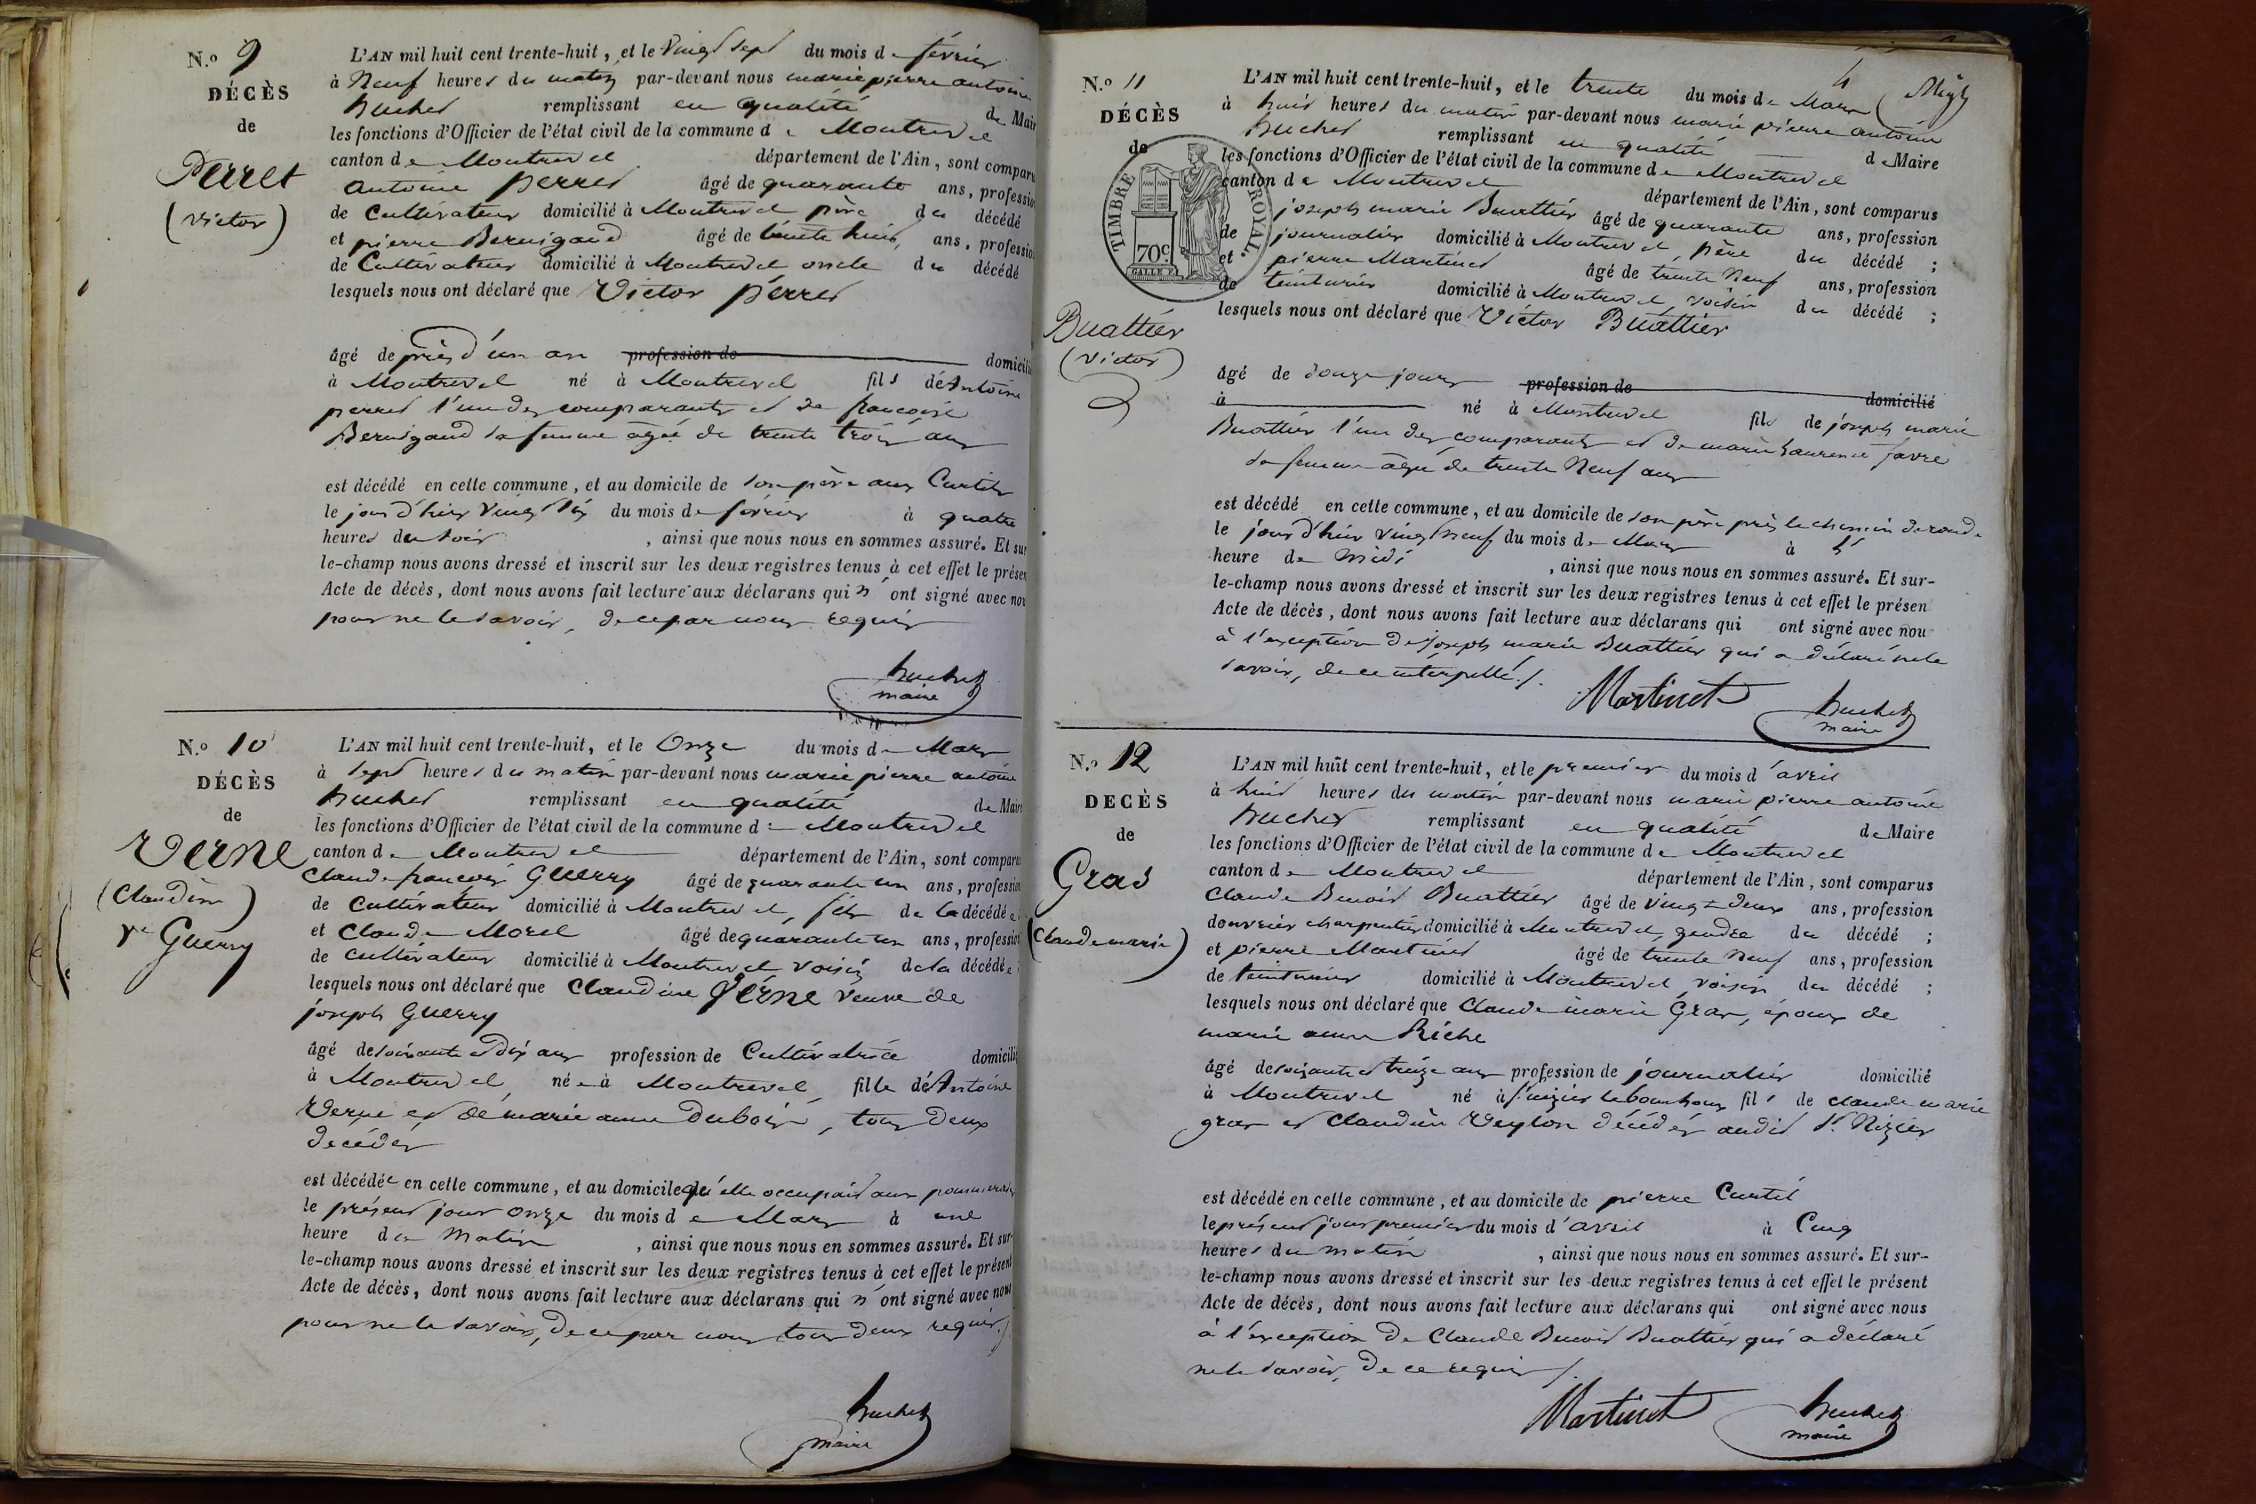 N.o 9
DÉCÈS
de
Perret
(victor)
L'AN mil huit cent trente-huit, et le vingt sept du mois de février
à neuf heures du matin par-devant nous marie pierre antoine
huchet remplissant en qualité de Mair
les fonctions d'Officier de l'état civil de la commune de Montrevel
canton de Montrevel département de l'Ain, sont comparu
antoine perret âgé de quarante ans, profession
de cultivateur domicilié à Montrevel père du décédé
et pierre Bernigaud âgé de trente huit, ans, profession
de cultivateur domicilié à Montrevel oncle du décédé
lesquels nous ont déclaré que Victor perret
âgé de près d'un an profession de domicilié
à Montrevel né à Montrevel fils de Antoine
perret l'un des comparants et de françoise
Bernigaud sa femme âgée de trente trois ans
est décédé en cette commune, et au domicile de son père aux Curtils
le jour d'hier vingt six du mois de février à quatre
heures du soir, ainsi que nous nous en sommes assuré. Et sur
le-champ nous avons dressé et inscrit sur les deux registres tenus à cet effet le présen
Acte de décès, dont nous avons fait lecture aux déclarans qui n'ont signé avec nou
pour ne le savoir, de ce par nous requis
huchet
maire
N.o 10
DÉCÈS
de
Verne
(Claudine)
Ve Guerry
L'AN mil huit cent trente-huit, et le onze du mois de Mars
à sept heures du matin par-devant nous marie pierre antoine
huchet remplissant en qualité de Maire
les fonctions d'Officier de l'état civil de la commune de Montrevel
canton de Montrevel département de l'Ain, sont comparu
Claude françois Guerry âgé de quarante un ans, profession
de cultivateur domicilié à Montrevel, fils de la décédée
et Claude Morel âgé de quarante un ans, profession
de cultivateur domicilié à Montrevel voisin de la décédée
lesquels nous ont déclaré que Claudine Verne veuve de
joseph Guerry
âgé de soixante et dix ans profession de Cultivatrice domicilié
à Montrevel, née à Montrevel, fille de Antoine
Verne et de marie anne Dubois, tous deux
décédés
est décédée en cette commune, et au domicile qu'elle occupait aux
le présent jour onze du mois de Mars à une
heure du matin, ainsi que nous nous en sommes assuré. Et sur-
le-champ nous avons dressé et inscrit sur les deux registres tenus à cet effet le présent
Acte de décès, dont nous avons fait lecture aux déclarans qui n'ont signé avec nous
pour ne le savoir, de ce par nous tous deux requis./.
huchet
maire
N.o 11
DÉCÈS
de
TIMBRE ROYAL.
70c
Buattier
(victor)
4
L'AN mil huit cent trente-huit, et le trente du mois de Mars
à huit heures du matin par-devant nous marie pierre antoine
huchet remplissant en qualité de Maire
les fonctions d'Officier de l'état civil de la commune de Montrevel
canton de Montrevel département de l'Ain, sont comparus
joseph marie Buattier âgé de quarante ans, profession
de journalier domicilié à Montrevel, père du décédé ;
et pierre Martinet âgé de trente neuf ans, profession
de teinturier domicilié à Montrevel, voisin du décédé ;
lesquels nous ont déclaré que Victor Buattier
âgé de douze jours profession de domicilié
à né à Montrevel fils de joseph marie
Buattier l'un des comparants et de marie Laurence favre
sa femme âgée de trente neuf ans
est décédé en cette commune, et au domicile de son père près le chemin de ronde
le jour d'hier vingt neuf du mois de Mars à l'
heure de midi, ainsi que nous nous en sommes assuré. Et sur-
le-champ nous avons dressé et inscrit sur les deux registres tenus à cet effet le présen
Acte de décès, dont nous avons fait lecture aux déclarans qui ont signé avec nou
à l'exception de joseph marie Buattier qui a déclaré ne le
savoir, de ce interpellé./.
Martinet
huchet
maire
N.o 12
DECÈS
de
Gras
(Claude marie)
L'AN mil huit cent trente-huit, et le premier du mois d'avril
à huit heures du matin par-devant nous marie pierre antoine
huchet remplissant en qualité de Maire
les fonctions d'Officier de l'état civil de la commune de Montrevel
canton de Montrevel département de l'Ain, sont comparus
Claude Benoit Buattier âgé de vingt deux ans, profession
d'ouvrier charpentier domicilié à Montrevel, gendre du décédé ;
et pierre Martinet âgé de trente neuf ans, profession
de teinturier domicilié à Montrevel, voisin du décédé ;
lesquels nous ont déclaré que Claude marie Gras, époux de
marie anne Riche
âgé de soixante et treize ans profession de journalier domicilié
à Montrevel né à St. nizier lebouchoux fils de claude marie
gras et Claudine Veylon décédés audit St. Nizier
est décédé en cette commune, et au domicile de pierre Curtil
le présent jour premier du mois d'avril à Cinq
heures du matin, ainsi que nous nous en sommes assuré. Et sur-
le-champ nous avons dressé et inscrit sur les deux registres tenus à cet effet le présent
Acte de décès, dont nous avons fait lecture aux déclarans qui ont signé avec nous
à l'exception de Claude Benoit Buattier qui a déclaré
ne le savoir, de ce requis./.
Martinet
huchet
maire